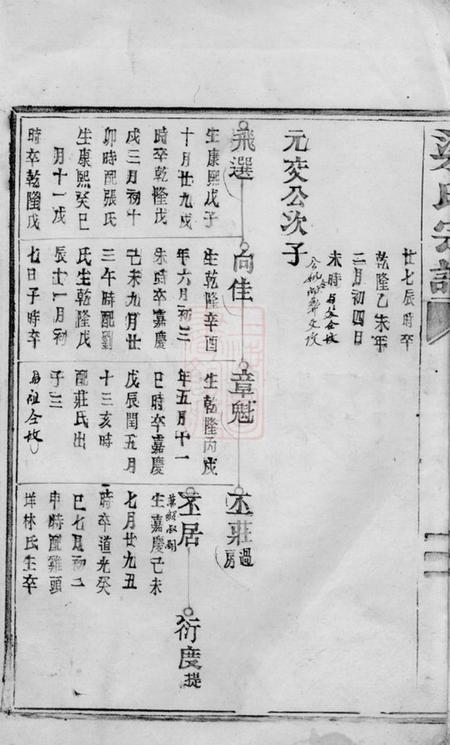 梁氏宗譜
廿七辰時卒
乾隆乙未年
二月初四日
未時
元交公次子
飛選
生康熙戊子
十月廿九戌
時卒乾隆戊
戌三月初十
卯時配張氏
生康熙癸巳
月十一戌
時卒乾隆戊
向佳
生乾隆辛酉
年六月初三
未時卒嘉慶
己未九月廿
三午時配劉
氏生乾隆戊
辰十一月初
七日子時卒
章魁
生乾隆丙戌
年五月十一
巳時卒嘉慶
戊辰閏五月
十三亥時
配莊氏出
子三
丕莊過房
丕居
生嘉慶己未
七月廿九丑
時卒道光癸
巳七月初二
申時配雞頭
垟林氏生卒
衍度 提